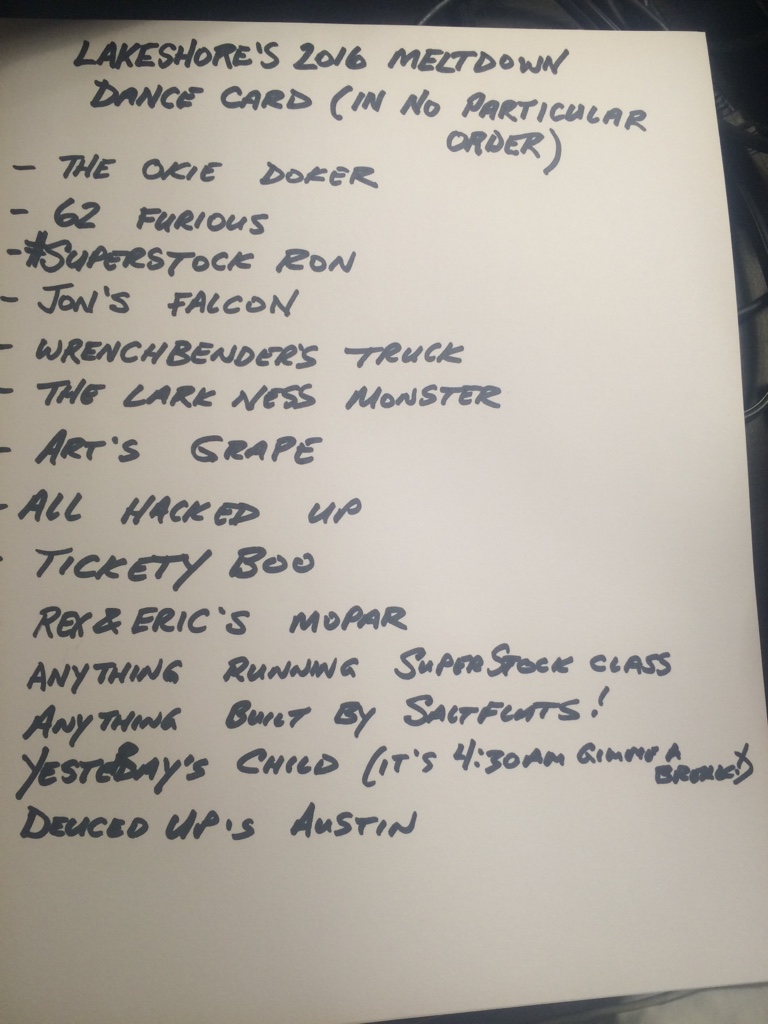 LAKESHORE'S 2016 MELTDOWN
DANCE CARD (IN NO PARTICULAR
ORDER)
- THE OKIE DOKER
- 62 FURIOUS
- #SUPERSTOCK RON
- JON'S FALCON
- WRENCHBENDER'S TRUCK
- THE LARK NESS MONSTER
- ART'S GRAPE
- ALL HACKED UP
- TICKETY BOO
REX & ERIC'S MOPAR
ANYTHING RUNNING SUPERSTOCK CLASS
ANYTHING BUILT BY SALTFLATS!
YESTERDAY'S CHILD (IT'S 4:30AM GIMME A
BREAK!)
DEUCED UP'S AUSTIN